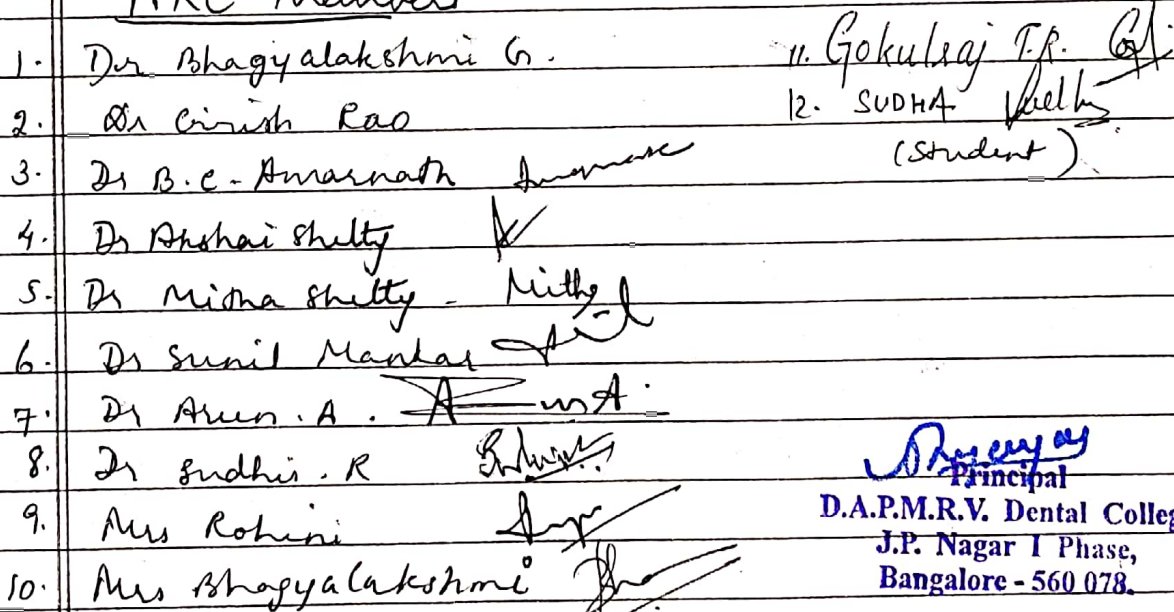 Members
1. Dr Bhagyalakshmi G.
2. Dr Girish Rao
3. Dr B.C. Amarnath
4. Dr Akshai Shetty
5. Dr Misha Shetty -
6. Dr Sunil
7. Dr Arun. A.
8. Dr Sudhir. R
9. Mrs Rohini
10. Mrs Bhagyalakshmi
11. Gokulraj T.R.
12. SUDHA
(Student)
Principal
D.A.P.M.R.V. Dental Colleg
J.P. Nagar I Phase,
Bangalore - 560 078.